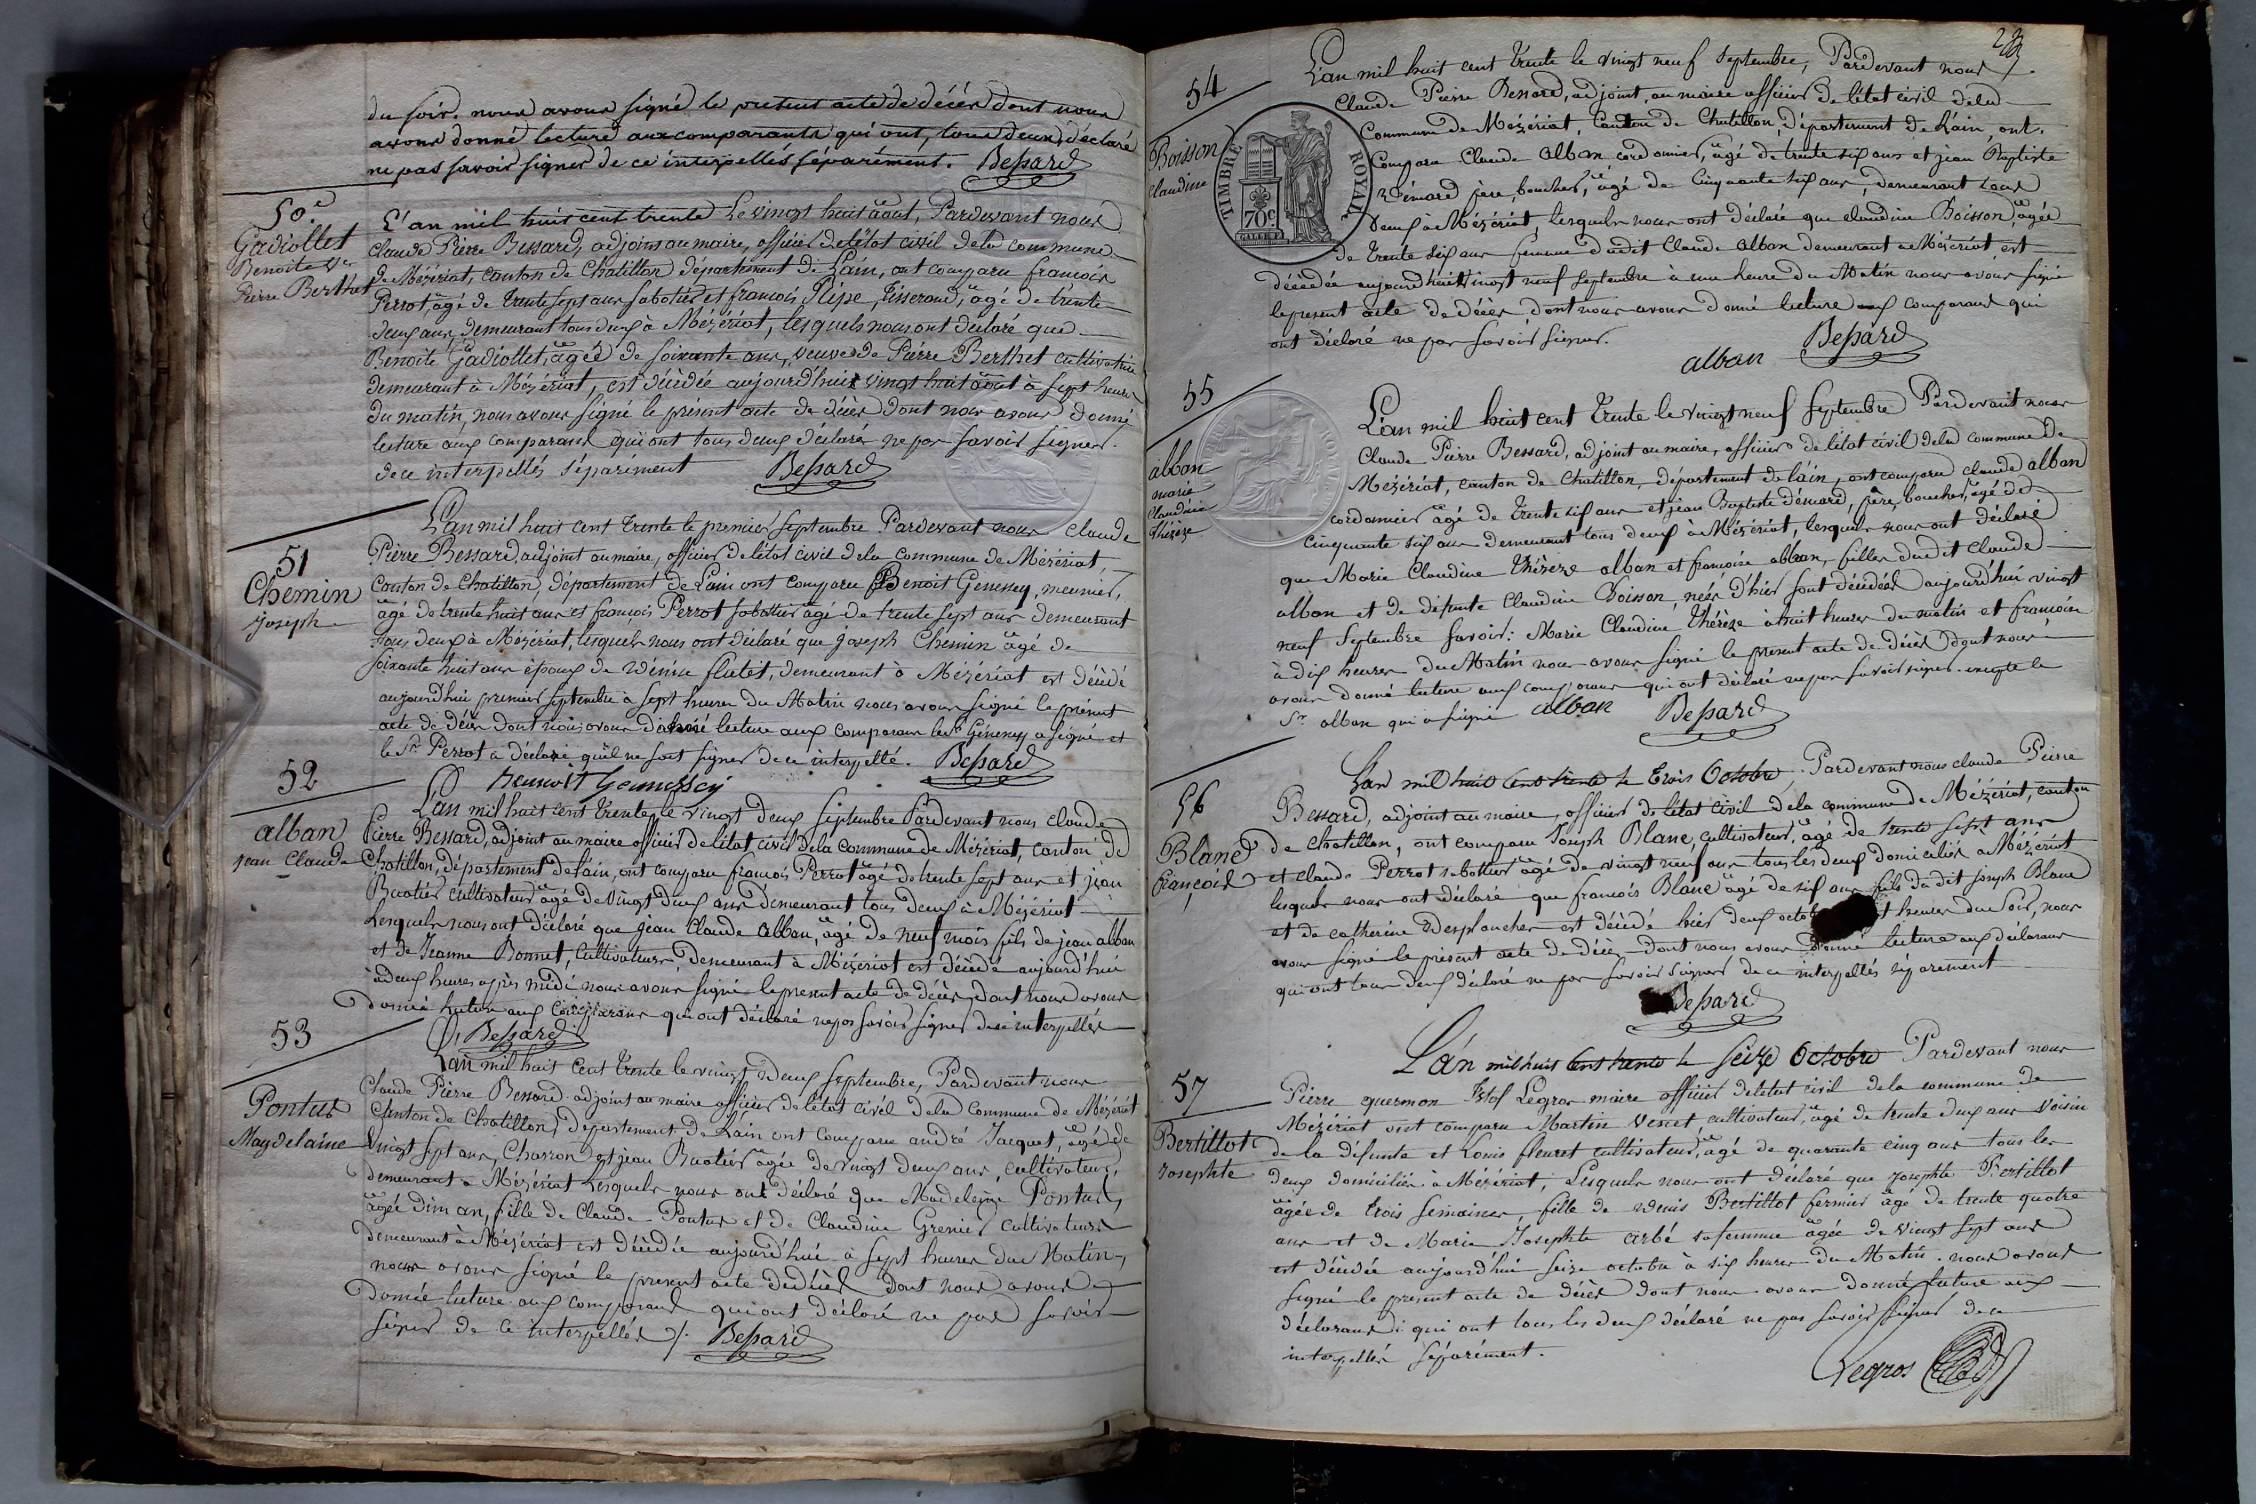 du soir. nous avons signé le present acte de décès dont nous
avons donné lecture aux comparants qui ont, tous deux, déclaré
ne pas savoir signer de ce interpellés séparément. Bessard
50e
Gadiollet
Benoite Ve
Pierre Berthet
L'an mil huit cent trente le vingt huit août, Pardevant nous
Claude Pierre Bessard, adjoint au maire, officier de l'état civil de la commune
de Mézériat, canton de Chatillon département de L'ain, ont comparu francois
Perrot, âgé de trente sept ans sabotier et francois Pépe, Tisserand, âgé de trente
deux ans, demeurant tous deux à Mézériat, lesquels nous ont déclaré que
Benoite Gadiollet, âgée de soixante ans, veuve de Pierre Berthet cultivatrice
demeurant à Mézériat, est décédée aujourd'hui vingt huit août à sept heures
du matin, nous avons signé le présent acte de décès dont nous avons donné
lecture aux comparans qui ont tous deux déclaré ne pas savoir signer.
de ce interpellés séparément Bessard
51
Chemin
joseph
L'an mil huit cent trente le premier septembre Pardevant nous Claude
Pierre Bessard, adjoint au maire, officier de l'état civil de la commune de Mézériat,
canton de Chatillon, département de L'ain ont comparu Benoit Genessey, meunier,
âgé de trente huit ans et françois Perrot sabottier âgé de trente sept ans demeurant
tous deux à Mézériat, lesquels nous ont déclaré que joseph Chemin âgé de
soixante huit ans époux de Denise flutet, demeurant à Mézériat est décédé
aujourd'hui premier septembre à sept heures du Matin nous avons signé le présent
acte de décès dont nous avons donné lecture aux comparans le Sr Genessey a signé et
le Sr Perrot a déclaré qu'il ne sait signer de ce interpellé. Bessard
Bennoit Genessey
52
alban
jean Claude
L'an mil huit cent trente le vingt deux septembre Pardevant nous claude
Pierre Bessard, adjoint au maire officier de l'état civil de la commune de Mézériat, canton de
Chatillon, département de l'ain, ont comparu francois Perrot âgé de trente sept ans et jean
Buatier cultivateur âgé de vingt deux ans demeurant tous deux à Mézériat
Lesquels nous ont déclaré que jean Claude alban, âgé de neuf mois fils de jean alban
et de Jeanne Bonnet, cultivateurs, demeurant à Mézériat est décédé aujourd'hui
à deux heures après midi nous avons signé le present acte de décès dont nous avons
donné lecture aux comparans qui ont déclaré ne pas savoir signer de ce interpellés
Bessard
53
Pontus
Magdelaine
L'an mil huit cent trente le vingt deux septembre, Pardevant nous
Claude Pierre Bessard adjoint au maire officier de l'état civil de la commune de Mézériat
Canton de Chatillon, département de L'ain ont comparu andré Jacquet, âgé de
vingt sept ans, Charron et jean Buatier âgée de vingt deux ans cultivateurs,
demeurant à Mézériat Lesquels nous ont déclaré que Madeleine Pontus,
âgée d'un an, fille de Claude Pontus et de Claudine Grenier cultivateurs
demeurant à Mézériat est décédée aujourd'hui à sept heures du Matin,
nous avons signé le present acte de décès dont nous avons
donné lecture aux comparans qui ont déclaré ne pas savoir
signer de ce interpellés ./. Bessard
54
Boisson
Claudine
TIMBRE ROYAL
70c
L'an mil huit cent trente le vingt neuf septembre, Pardevant nous
Claude Pierre Bessard, adjoint, au maire officier de l'état civil de la
Commune de Mézériat, Canton de Chatillon, département de L'ain, ont
Comparu Claude alban cordonnier, âgé de trente six ans et jean Baptiste
Démard père, boucher, âgé de Cinquante six ans, demeurant tous
deux à Mézériat, lesquels nous ont déclaré que claudine Boisson, âgée
de trente six ans femme dudit Claude alban demeurant à Mézériat, est
décédée aujourd'hui vingt neuf septembre à une heure du Matin nous avons signé
le present acte de décès, dont nous avons donné lecture aux comparans qui
ont déclaré ne pas savoir signer.
alban Bessard
55
alban
marie
Claudine
thérèze
L'an mil huit cent trente le vingt neuf septembre Pardevant nous
Claude Pierre Bessard, adjoint au maire, officier de l'état civil de la commune de
Mézériat, canton de Chatillon, département de l'ain, ont comparu claude alban
cordonnier âgé de trente six ans et jean Baptiste démard, père, boucher, âgé de
cinquante six ans demeurant tous deux à Mézériat, lesquels nous ont déclaré
que Marie Claudine thérèze alban et francoise alban, filles dudit Claude
alban et de défunte Claudine Boisson, nées d'hier sont décédées aujourd'hui vingt
neuf septembre savoir: Marie Claudine thérèze à huit heures du matin et francoise
à dix heures du Matin nous avons signé le present acte de décès dont nous
avons donné lecture aux comparans qui ont déclaré ne pas savoir signer excepté le
Sr alban qui a signé alban Bessard
56
Blanc
françois
L'an mil huit cent trente le trois Octobre, Pardevant nous claude Pierre
Bessard, adjoint au maire, officier de l'état civil de la commune de Mézériat, canton
de chatillon, ont comparu Joseph Blanc, cultivateur, âgé de trente sept ans
et claude Perrot sabottier âgé de vingt neuf ans tous les deux domiciliés à Mézériat
lesquels nous ont déclaré que francois Blanc âgé de six ans fils dudit joseph Blanc
et de catherine Desplanches est décédé hier deux heures du soir, nous
avons signé le présent acte de décès dont nous avons donné lecture aux déclarans
qui ont tous deux déclaré ne pas savoir signer de ce interpellés séparément
Bessard
57
Bertillot
Josephte
L'an mil huit cent trente le seize Octobre Pardevant nous
Pierre Legros maire officier de l'état civil de la commune de
Mézériat ont comparu Martin Venet, cultivateur, âgé de trente deux ans voisin
de la défunte et Louis fleuret cultivateur, âgé de quarante cinq ans tous les
deux domiciliés à Mézériat, Lesquels nous ont déclaré que josephte Bertillot
âgée de trois semaines, fille de Denis Bertillot fermier âgé de trente quatre
ans et de Marie Josephte arbé sa femme âgée de vingt sept ans
est décédée aujourd'hui seize octobre à six heures du Matin. nous avons
signé le present acte de décès dont nous avons donné lecture aux
déclarans qui ont tous les deux déclaré ne pas savoir signer de ce
interpellés séparément.
Legros